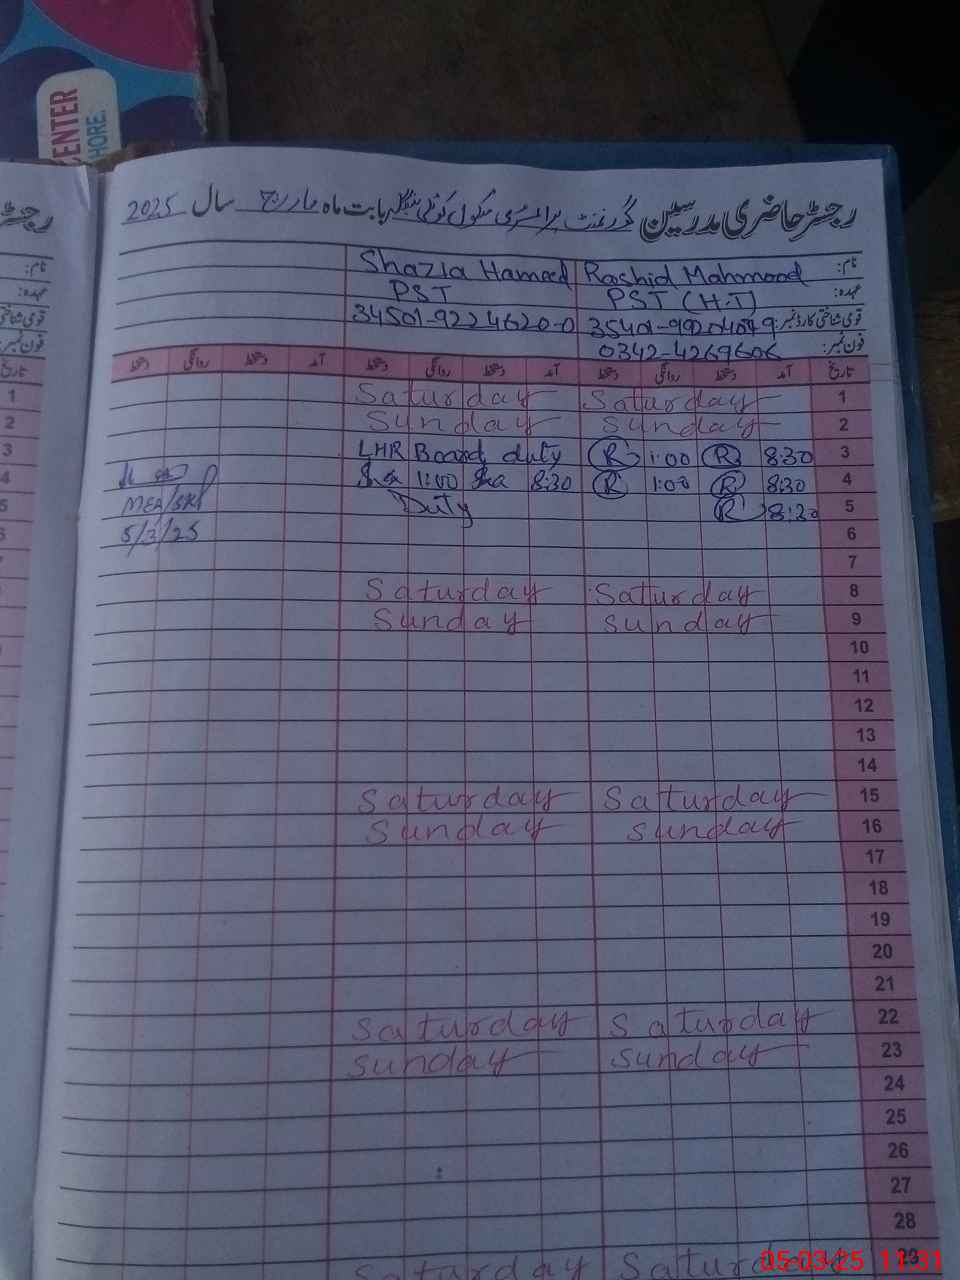 CENTER
HORE.
رجسٹر حاضری مدرسین گورنمنٹ پرائمری سکول کوٹلی بابت ماہ مارچ سال 2025
نام: Rashid Mahmood Shazia Hameed
عہدہ: PST (H.T) PST
قومی شناختی کارڈ نمبر: 34501-9224620-0
فون نمبر: 0342-4269606
تاریخ آمد دستخط روانگی دستخط آمد دستخط روانگی دستخط آمد دستخط روانگی دستخط
1 Saturday Saturday
2 Sunday Sunday
3 8:30 R 1:00 R LHR Board duty
4 8:30 R 1:00 R 8:30 1:00
5 8:30 R Duty
MEA/SKP
6 5/3/25
7
8 Saturday Saturday
9 Sunday Sunday
10
11
12
13
14
15 Saturday Saturday
16 Sunday Sunday
17
18
19
20
21
22 Saturday Saturday
23 Sunday Sunday
24
25
26
27
28
29 Saturday Saturday
05-03-25 11:31